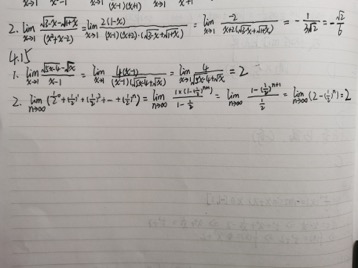 x→1 x²-1 x→1 (x-1)(x+1) x→1 x+1
2. lim x→1 (√(3-x)-√(1+x))/(x²+x-2) = lim x→1 2(1-x)/((x-1)(x+2)·(√(3-x)+√(1+x))) = lim x→1 -2/((x+2)(√(3-x)+√(1+x))) = -1/(3√2) = -√2/6
4.15
1. lim x→1 (√(5x-4)-√x)/(x-1) = lim x→1 4(x-1)/((x-1)(√(5x-4)+√x)) = lim x→1 4/(√(5x-4)+√x) = 2
2. lim n→∞ (½⁰+(½)¹+(½)²+…+(½)ⁿ) = lim n→∞ 1×(1-(½)ⁿ⁺¹)/(1-½) = lim n→∞ (1-(½)ⁿ⁺¹)/(½) = lim n→∞ (2-(½)ⁿ) = 2